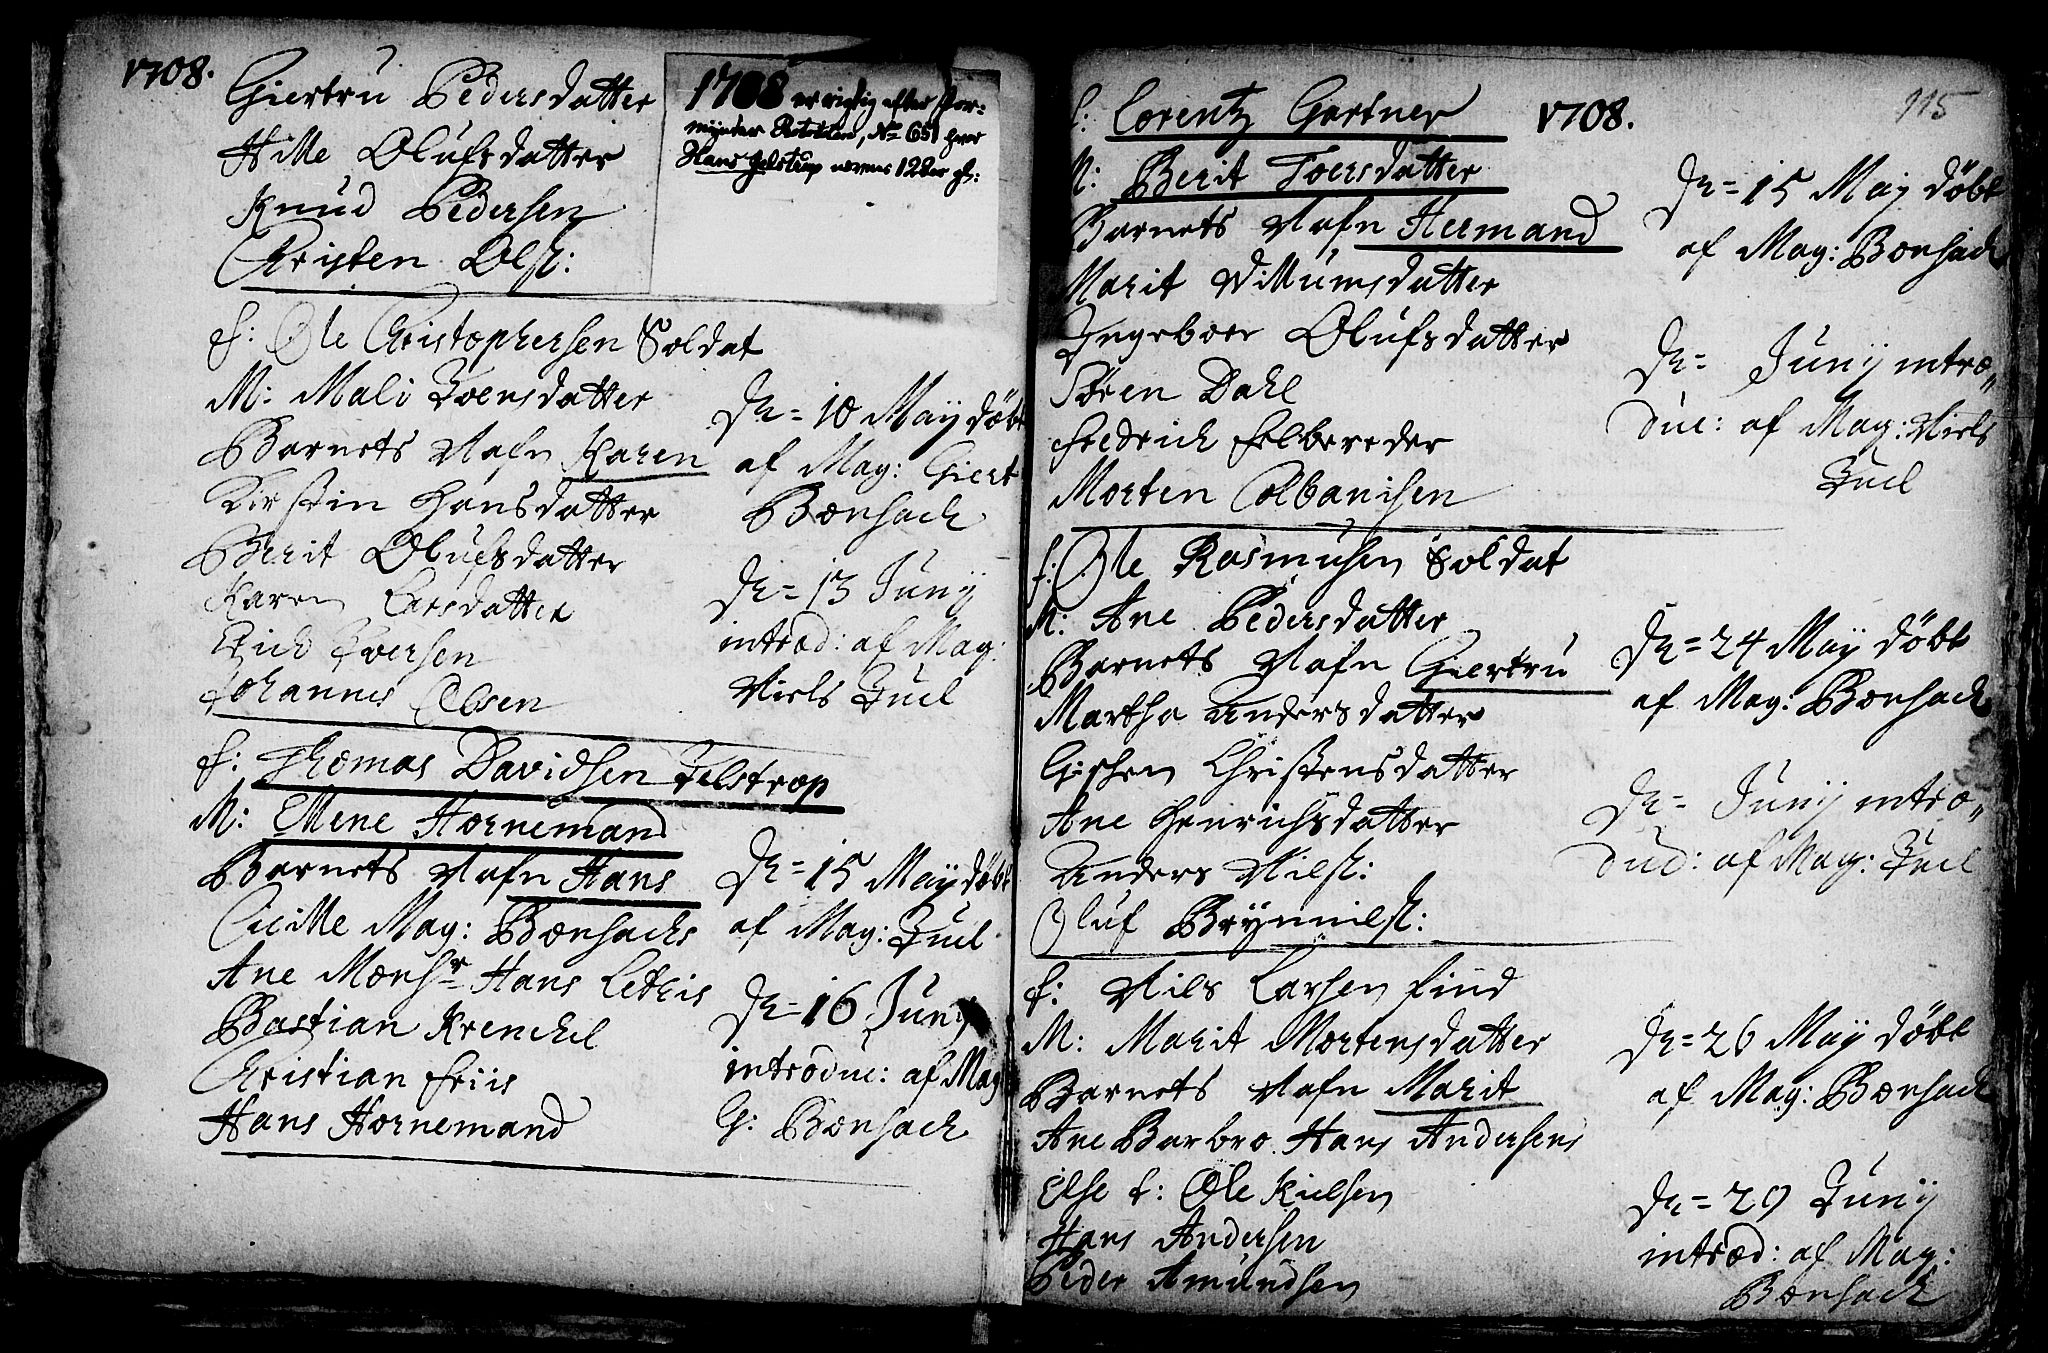 1708.
Giertru Pedersdatter
Hille Olufsdatter
Knud Pedersen
Christen Ols:
1708 er rigtig efter For-
mynder Protokollen, No 651 hvor
Hans Jelstrup nævnes 128er gl:
f: Ole Christophersen Soldat
M: Mali Joensdatter
Barnets Nafn Karen
Kirstin Hansdatter
Berit Olufsdatter
Karen Larsdatter
Erich Iversen
Johannes Olsen
D = 10 Maÿ döbt
af Mag: Giert
Bonsach
D = 13 Junÿ
introd: af Mag:
Niels Juel
f: Thomas Davidsen Jelstrop
M: Ellene Hornemand
Barnets Nafn Hans
Cicille Mag: Bonsachs
Ane Monsr Hans Lethis
Bastian Krenckel
Christian Friis
Hans Hornemand
D = 15 Maÿ döbt
af Mag: Juel
D = 16 Junÿ
introduc: af Mag
G: Bonsach
115
1708.
f: Lorentz Gartner
M: Berit Toersdatter
Barnets Nafn Hermand
Marit Villumsdatter
Ingeboer Olufsdatter
Sören Dahl
Fredrich Felbereder
Morten Colbanisen
D = 15 Maÿ döbt
af Mag: Bonsach
D = Junÿ intro„
duc: af Mag: Niels
Juel
f: Ole Rasmusen Soldat
M: Ane Pedersdatter
Barnets Nafn Giertru
Martha Andersdatter
Gishen Christensdatter
Ane Henrichsdatter
Anders Nils:
Oluf Brynnils:
D = 24 Maÿ döbt
af Mag: Bonsach
D = Junÿ intro„
duc: af Mag: Juel
f: Nils Larsen find
M: Marit Mortensdatter
Barnets Nafn Marit
Ane Barbro Hans Andersens
Else f: Ole Kielsen
Hans Andersen
Peder Amundsen
D = 26 Maÿ döbt
af Mag: Bonsach
D = 29 Junÿ
introd: af Mag:
Bonsach